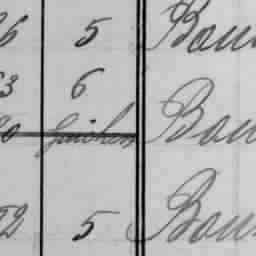 6 5 Bau
3 6
20 Bau
22 5 Bau